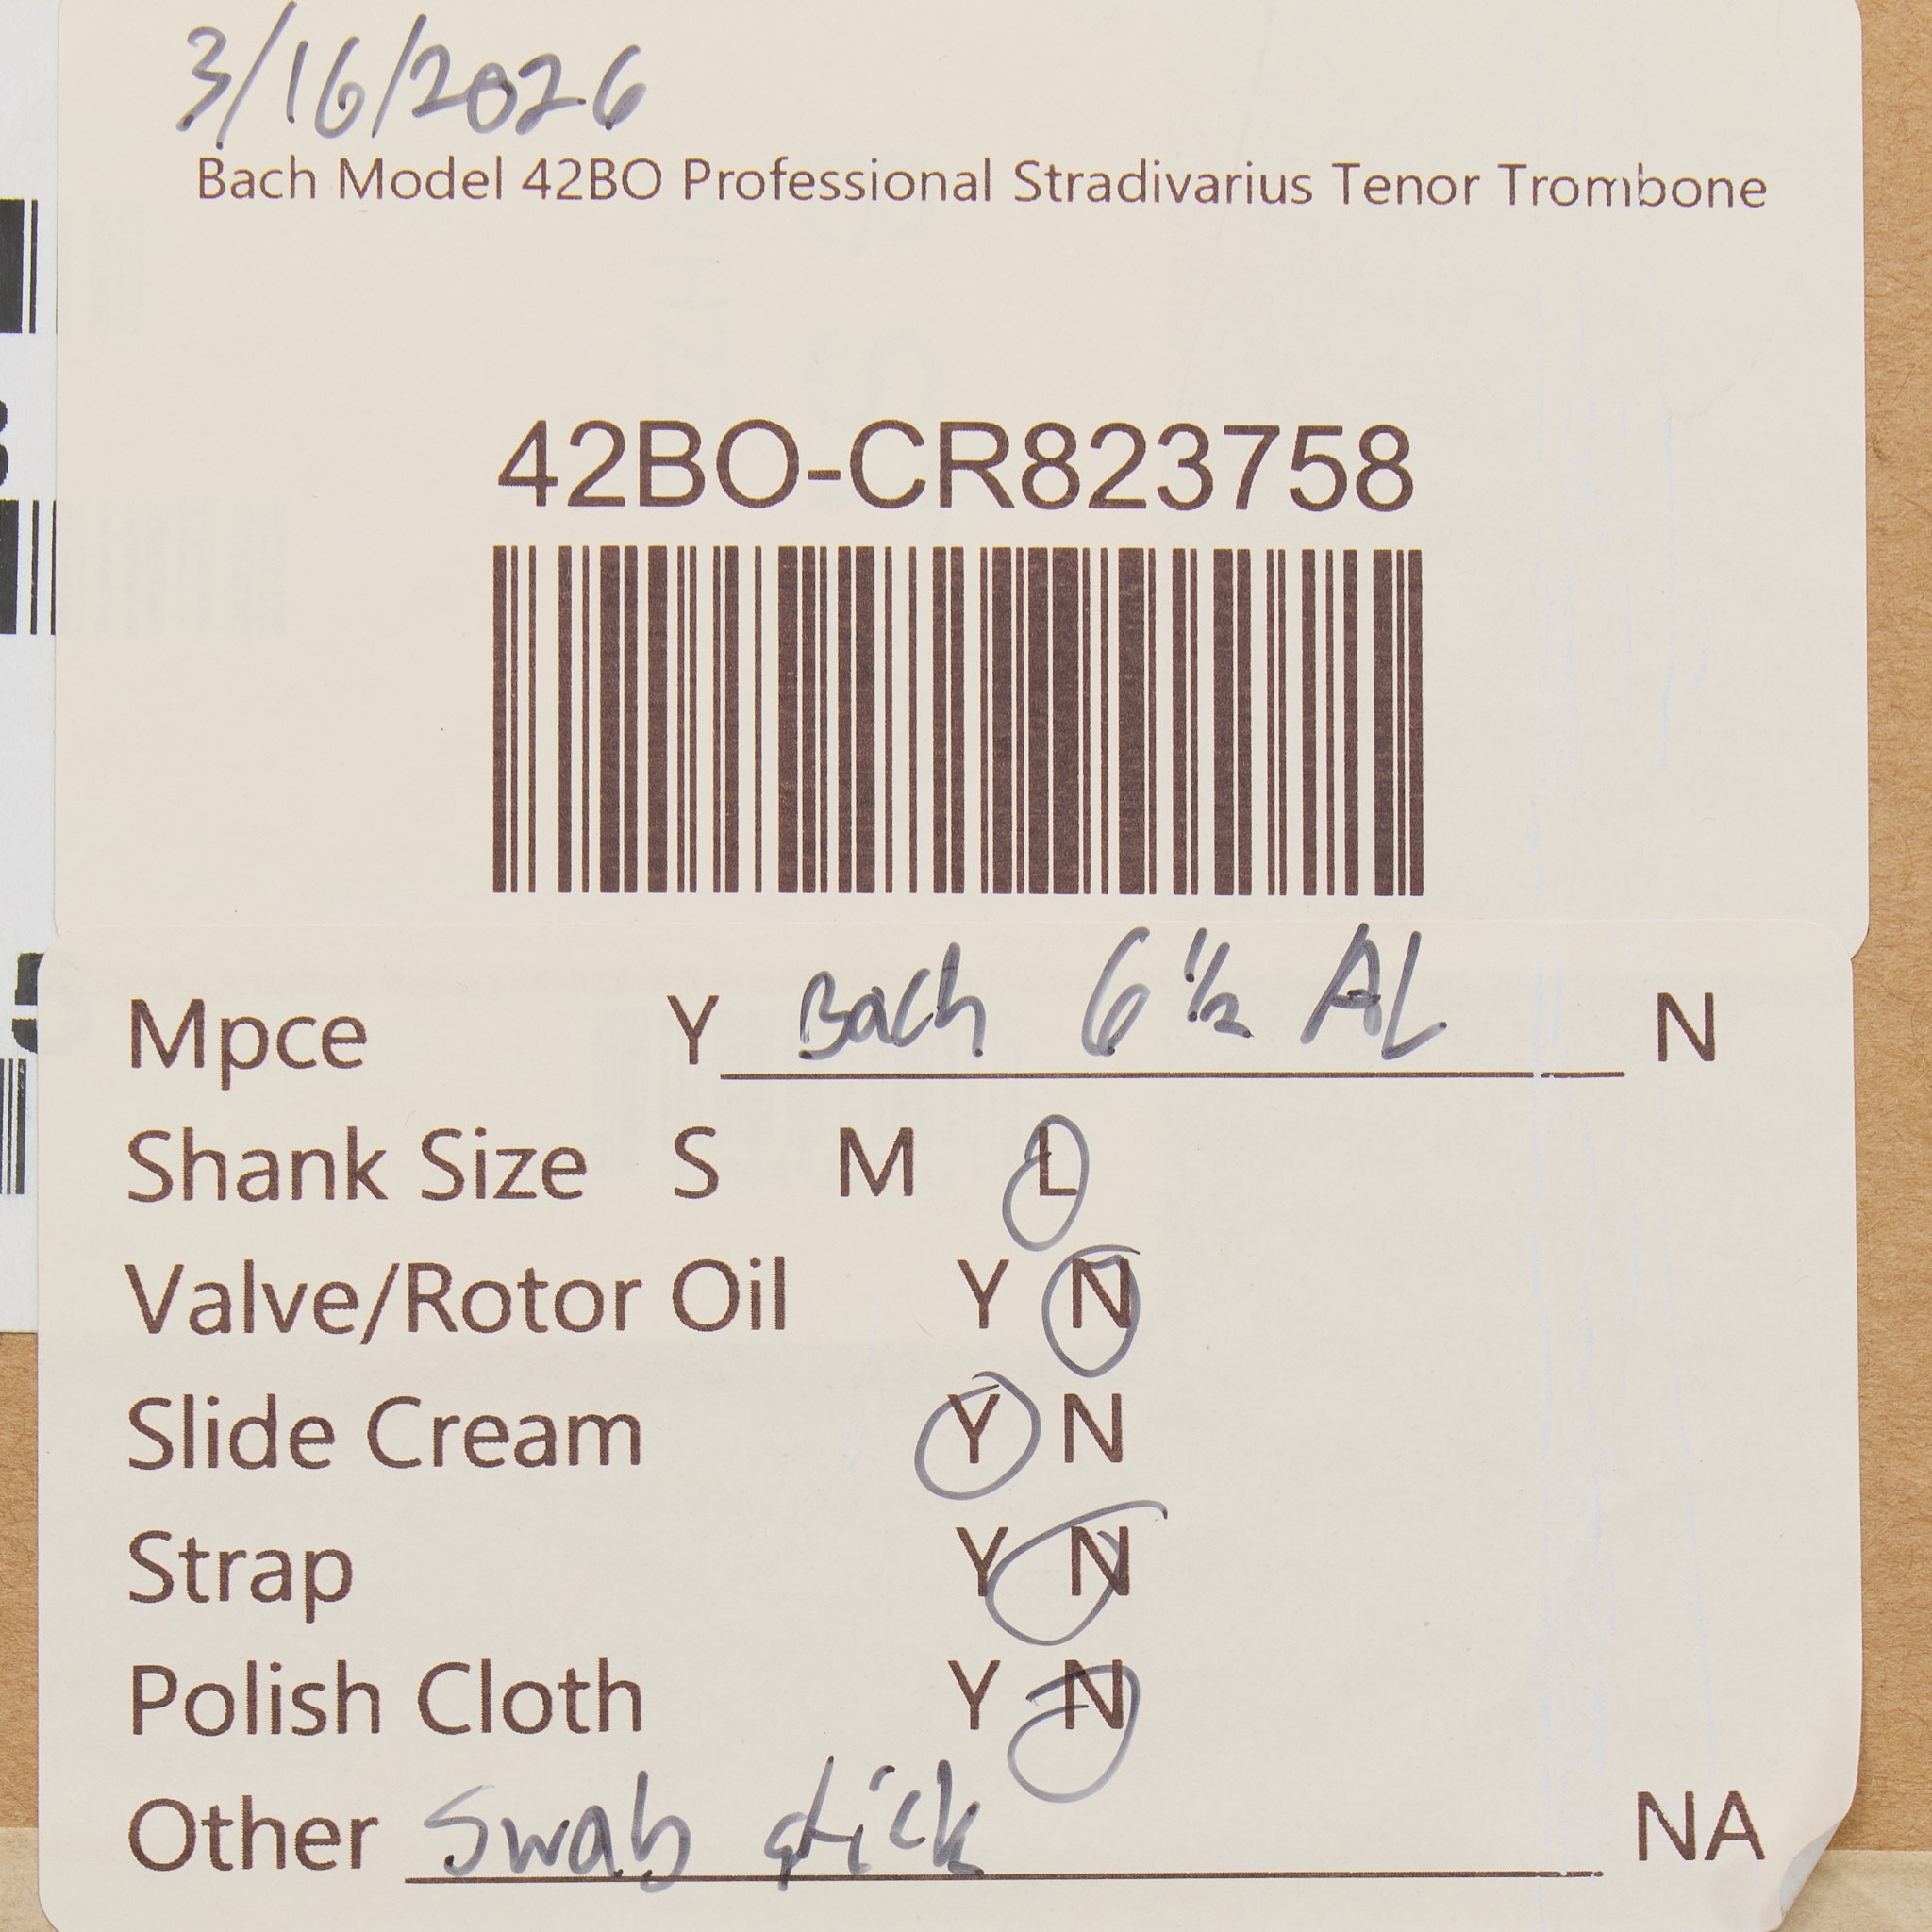 3/16/2026
Bach Model 42BO Professional Stradivarius Tenor Trombone
42BO-CR823758
Mpce Y Bach 6 1/2 AL N
Shank Size S M L
Valve/Rotor Oil Y N
Slide Cream Y N
Strap Y N
Polish Cloth Y N
Other Swab stick NA